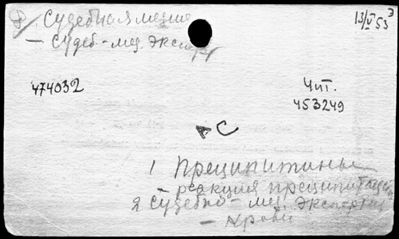 Судебная медиц
13/V 53 г
— Судеб-мед. экспер
474032
Чит.
453249
С
1 Преципитины
— реакция преципитации
2 Судебно-мед. экспертиза
— крови